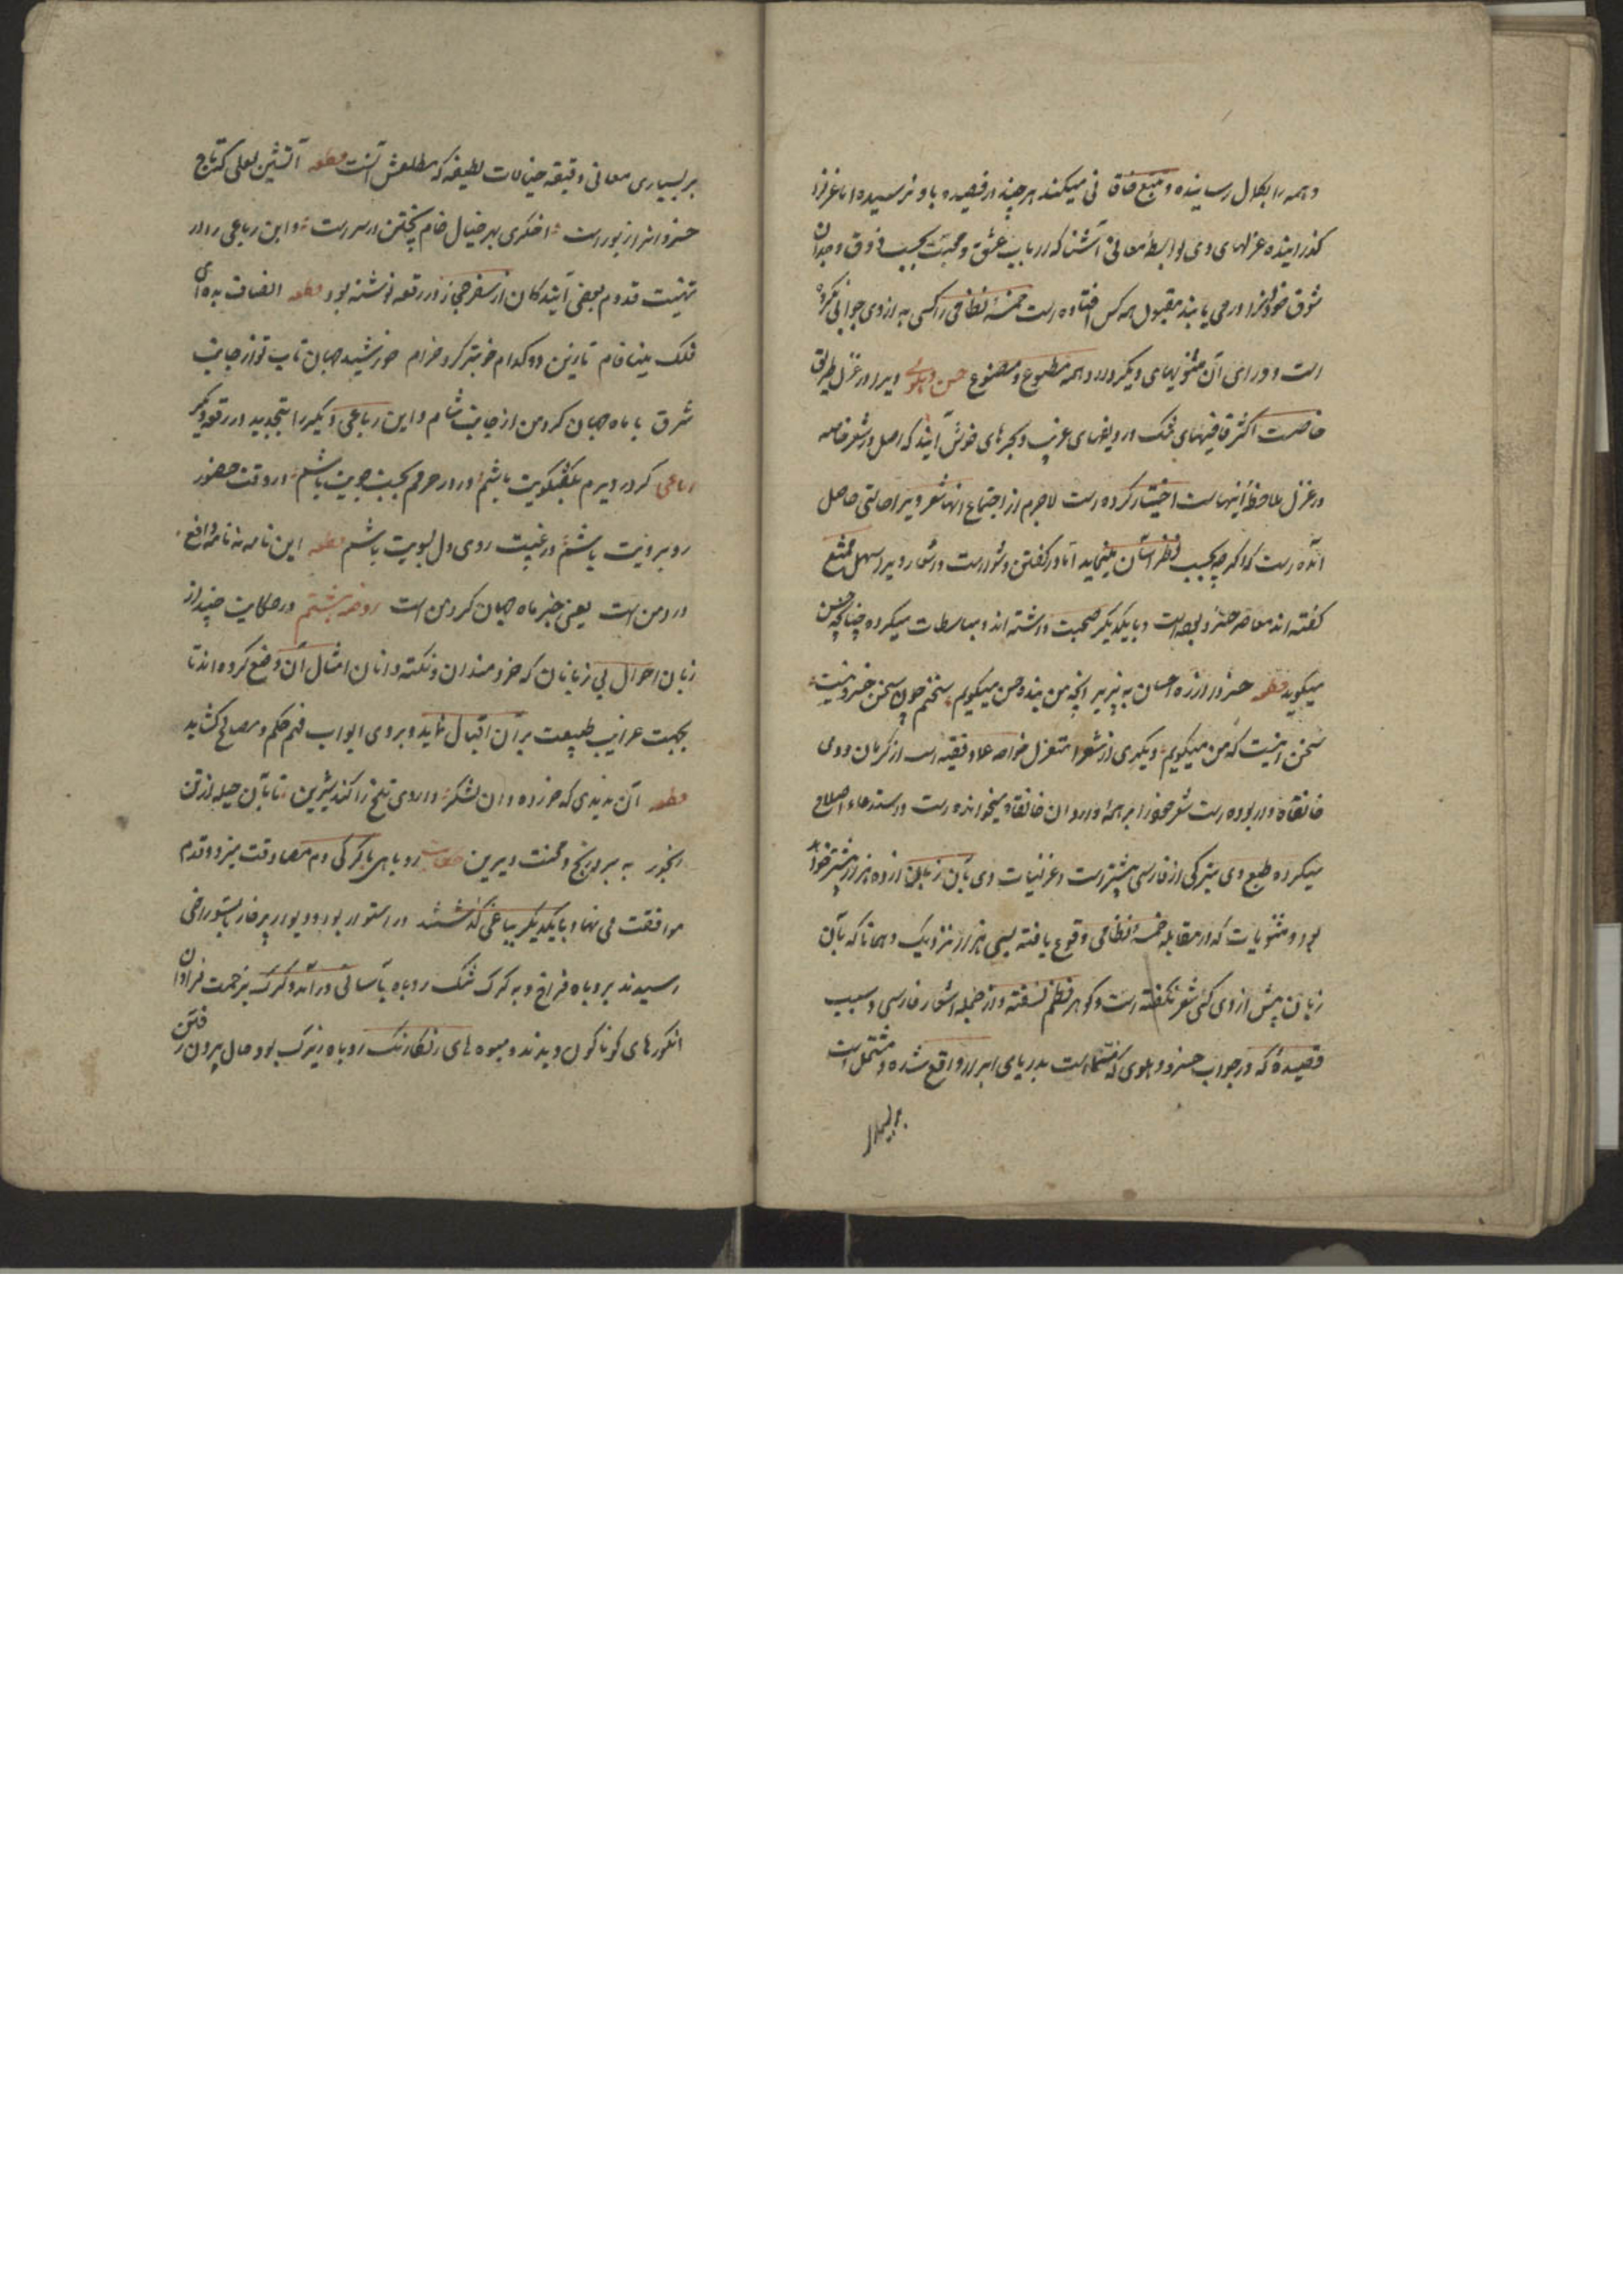 و همه را بکمال رسانیده و تتبع خاقانی میکند هر چند در قصیده باو نرسیده اما غزل را
گذرانیده غزلهای وی بواسطه معانی آشنا که ارباب عشق و محبت بحسب ذوق و وجدان
شوق خود را در می یابند مقبول همه کس افتاده است خمسه نظامی را کسی به از وی جواب نکرده
است و ورای آن مثنویهای دیگر دارد همه مطبوع و مصنوع حسن دهلوی ویرا در غزل طریق
خاصست اکثر قافیهای تنک و ردیفهای غریب و بحرهای خوش آینده که اصل در شعر خاصه
در غزل ملاحظه اینهاست اختیار کرده است لاجرم از اجتماع اینها شعر ویرا حالتی حاصل
آمده است که اگر چه بحسب نظر آسان مینماید اما در گفتن دشوارست و اشعار ویرا سهل ممتنع
گفته اند معاصر خسرو بوده است و با یکدیگر صحبت داشته اند و مباسطات میکرده چنانچه حسن
میگوید قطعه خسرو از راه احسان بپذیرد انچه من بنده حسن میگویم سخنم چون سخن خسرو نیست
سخن اینست که من میگویم دیگری از شعرا متغزل خواجه عماد فقیه است از کرمان و وی
خانقاه دار بوده است شعر خود را بر همه واردان خانقاه میخوانده است و استدعاء اصلاح
میکرده طبع وی بترکی از فارسی بیشتر است و غزلیات وی بآن زبان از ده هزار بیشتر خواهد
بود و مثنویات که در مقابله خمسه نظامی وقوع یافته بسی هزار نزدیک و همانا که بآن
زبان پیش از وی کسی شعر نگفته است و گوهر نظم نسفته و از جمله اشعار فارسی وی
قصیده که در جواب خسرو دهلوی که مسماست بدریای ابرار واقع شده و مشتمل است
بر بسیاری معانی دقیقه خیالات لطیفه که مطلعش آنست قطعه آتشین لعلی که تاج
خسروانرا زیورست اخگری بهر خیال خام پختن در سرست و این رباعی را در
تهنیت قدوم بعضی آیندگان از سفر حجاز در رقعه نوشته بود قطعه انصاف بده ای
فلک مینافام تا زین دو کدام خوبتر کرد خرام خورشید جهان تاب تو از جانب
شرق یا ماه جهان گرد من از جانب شام و این رباعی دیگر را بتجدید در رقعه دیگر
رباعی گر در دیرم بگفتگویت باشم ور در حرم بجست جویت باشم در وقت حضور
روبرویت باشم در غیبت روی دل بسویت باشم قطعه این نامه نه نامه دافع
درد من است یعنی خبر ماه جهان گرد من است روضه هشتم در حکایت چند از
زبان احوال بی زبانان که خردمندان و نکته دانان امثال آن وضع کرده اند تا
بجهت غرایب طبیعت بر آن اقبال نماید و بروی ابواب فهم حکم و مصالح کشاید
قطعه آن ندیدی که خرده دان بشکر داروی تلخ را کند شیرین تا بآن حیله از تن
رنجور به برد رنج و محنت دیرین حکایت روباهی با گرگی دم مصادقت میزد و قدم
موافقت می نهاد با یکدیگر بباغی گذشتند در استوار بود و دیوار پر خار بسوراخی
رسیدند بر روباه فراخ و بر گرگ تنک روباه بآسانی در آمد و گرگ بزحمت فراوان
انگورهای گوناگون دیدند و میوه های رنگارنگ روباه زیرک بود حال بیرون رفتن